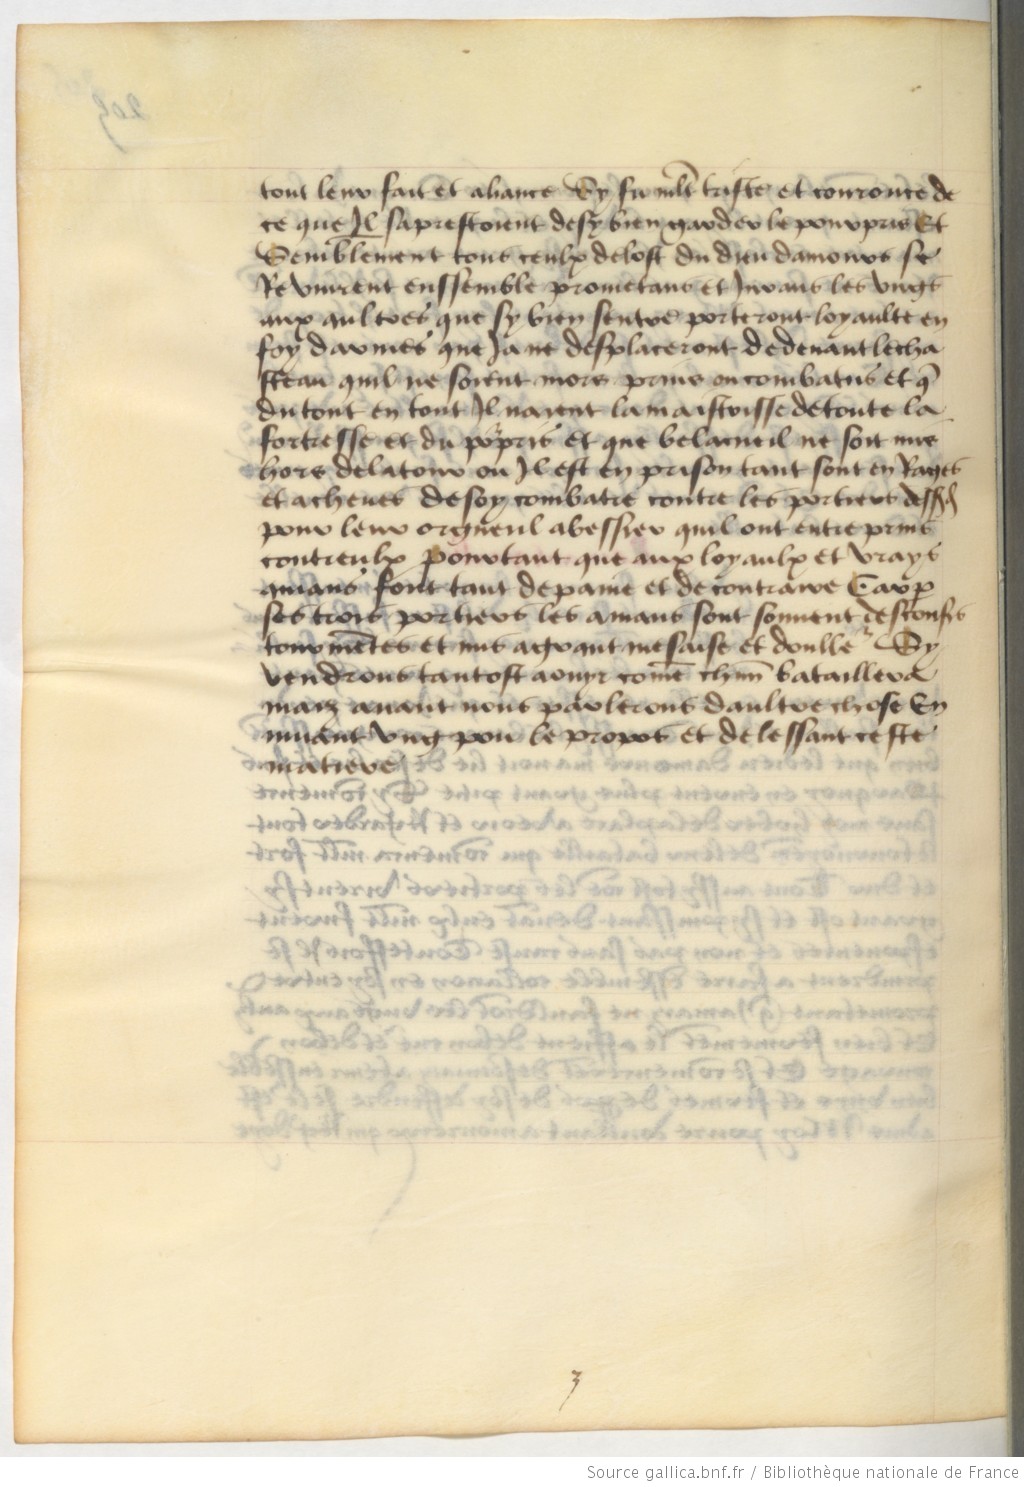 tout leur fait et aliance Sy fu mlt triste et couronce de
ce que Il saprestoient desy bien garder le pourpris Et
Semblement tous ceulx delost du dieu damours se
Reunirent enssemble prometans et Jurans les ungs
aux aultres que sy bien sentre porteront loyaulte en
foy darmes que Ja ne desplaceront dedeuant lecha
steau quil ne soient mors prins ou combatus et q̄
du tout en tout Il naient la maistrisse detoute la
fortresse et du po'pris et que belacueil ne soit mis
hors delatour ou Il est en prison tant sont en Rages
et acheues desoy combatre contre les portiers
pour leur orgueil abessier quil ont entre prins
contreulx Pourtant que aux loyaulx et vrays
amans font tant depaine et decontraire Car p
ses trois portiers les amans sont souuent desconfis
tourmētes et mis agrant mesaise et doulle Sy
vendrons tantost aouyr cōme chūn bataillera
maiz auant nous parlerons daultre chose En
muant vng pou le propos et delessant ceste
matiere
3
Source gallica.bnf.fr / Bibliothèque nationale de France